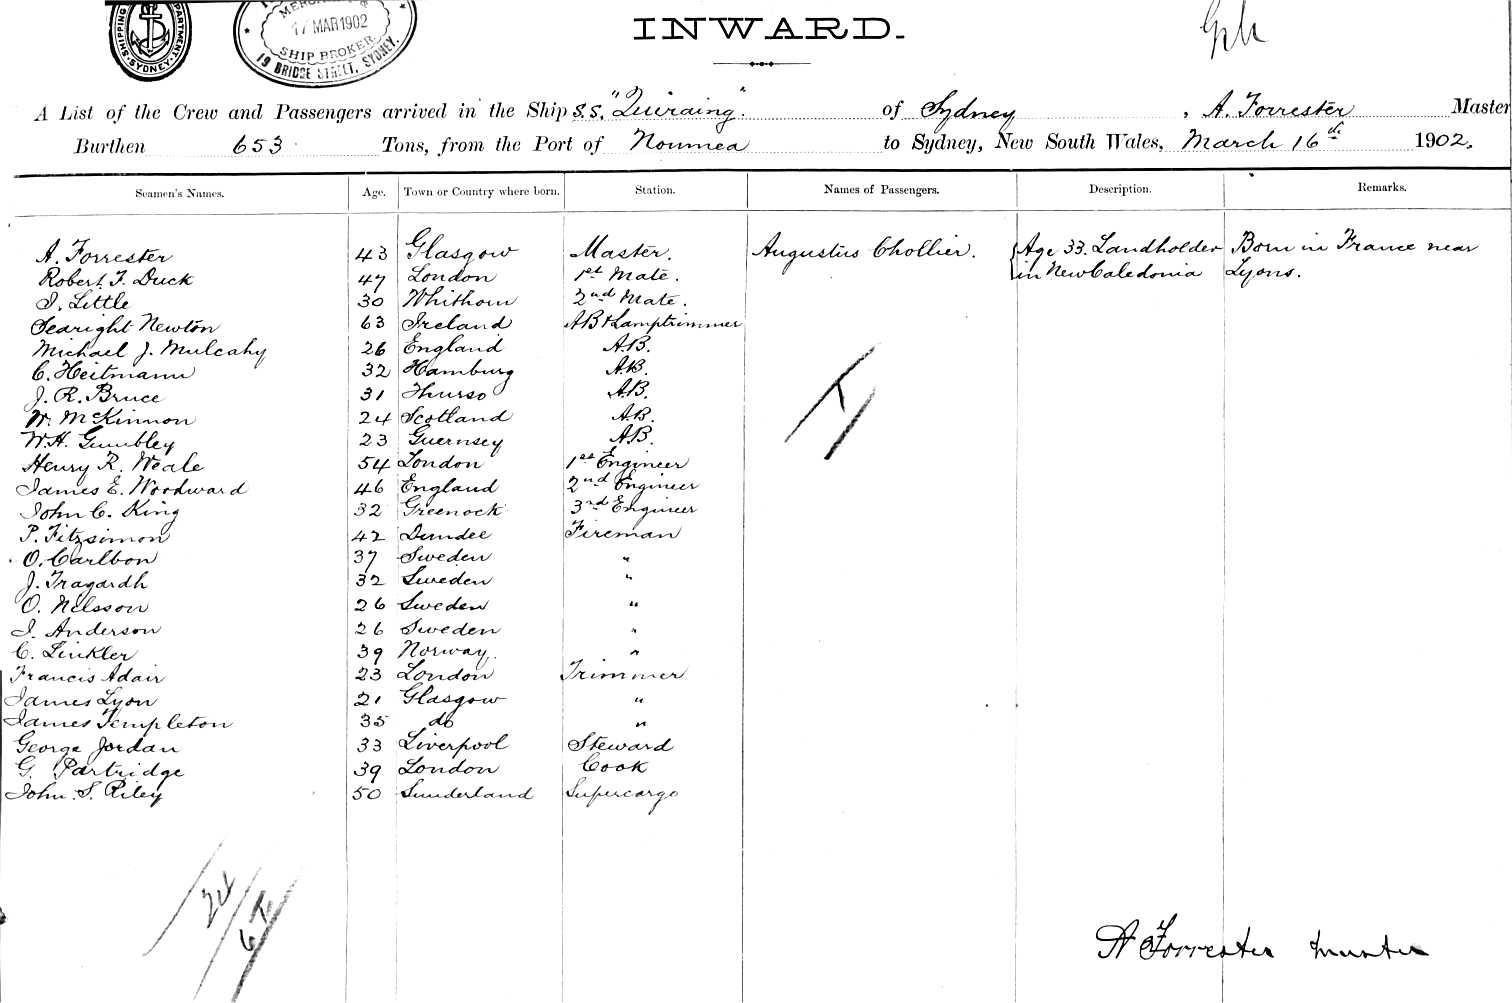 SHIPPING DEPARTMENT
SYDNEY
17 MAR 1902
SHIP BROKER
19 BRIDGE STREET, SYDNEY.
INWARD.
A List of the Crew and Passengers arrived in the Ship S.S. "Quiraing". of Sydney, A. Forrester Master
Burthen 653 Tons, from the Port of Noumea to Sydney, New South Wales, March 16th 1902.
Seamen's Names. Age. Town or Country where born. Station. Names of Passengers. Description. Remarks.
A. Forrester 43 Glasgow Master. Augustus Chollier. Age 33. Landholder Born in France near
Robert F. Duck 47 London 1st Mate. in New Caledonia Lyons.
I. Little 30 Whithorn 2nd Mate.
Searight Newton 63 Ireland AB & Lamptrimmer
Michael J. Mulcahy 26 England A.B.
C. Heitmann 32 Hamburg A.B.
J. R. Bruce 31 Thurso A.B.
W. McKinnon 24 Scotland A.B.
W.H. Gumbley 23 Guernsey A.B.
Henry R. Weale 54 London 1st Engineer
James E. Woodward 46 England 2nd Engineer
John C. King 32 Greenock 3rd Engineer
P. Fitzsimon 42 Dundee Fireman
O. Carlbon 37 Sweden "
J. Tragardh 32 Sweden "
O. Nelsson 26 Sweden "
I. Anderson 26 Sweden "
C. Linkler 39 Norway. "
Francis Adair 23 London Trimmer
James Lyon 21 Glasgow "
James Templeton 35 do "
George Jordan 33 Liverpool Steward
G. Partridge 39 London Cook
John. S. Riley 50 Sunderland Supercargo
24
A Forrester Master